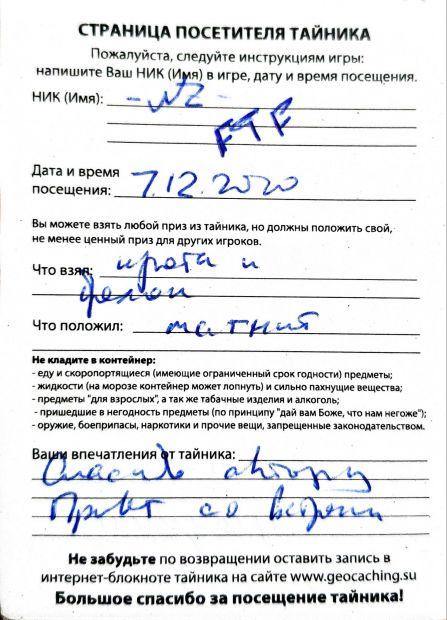 СТРАНИЦА ПОСЕТИТЕЛЯ ТАЙНИКА
Пожалуйста, следуйте инструкциям игры:
напишите Ваш НИК (Имя) в игре, дату и время посещения.
НИК (Имя): -NZ-
FTF
Дата и время
посещения: 7.12.2020
Вы можете взять любой приз из тайника, но должны положить свой,
не менее ценный приз для других игроков.
Что взял: и
Что положил: магнит
Не кладите в контейнер:
- еду и скоропортящиеся (имеющие ограниченный срок годности) предметы;
- жидкости (на морозе контейнер может лопнуть) и сильно пахнущие вещества;
- предметы "для взрослых", а так же табачные изделия и алкоголь;
- пришедшие в негодность предметы (по принципу "дай вам Боже, что нам негоже");
- оружие, боеприпасы, наркотики и прочие вещи, запрещенные законодательством.
Ваши впечатления от тайника:
Спасибо автору
со
Не забудьте по возвращении оставить запись в
интернет-блокноте тайника на сайте www.geocaching.su
Большое спасибо за посещение тайника!